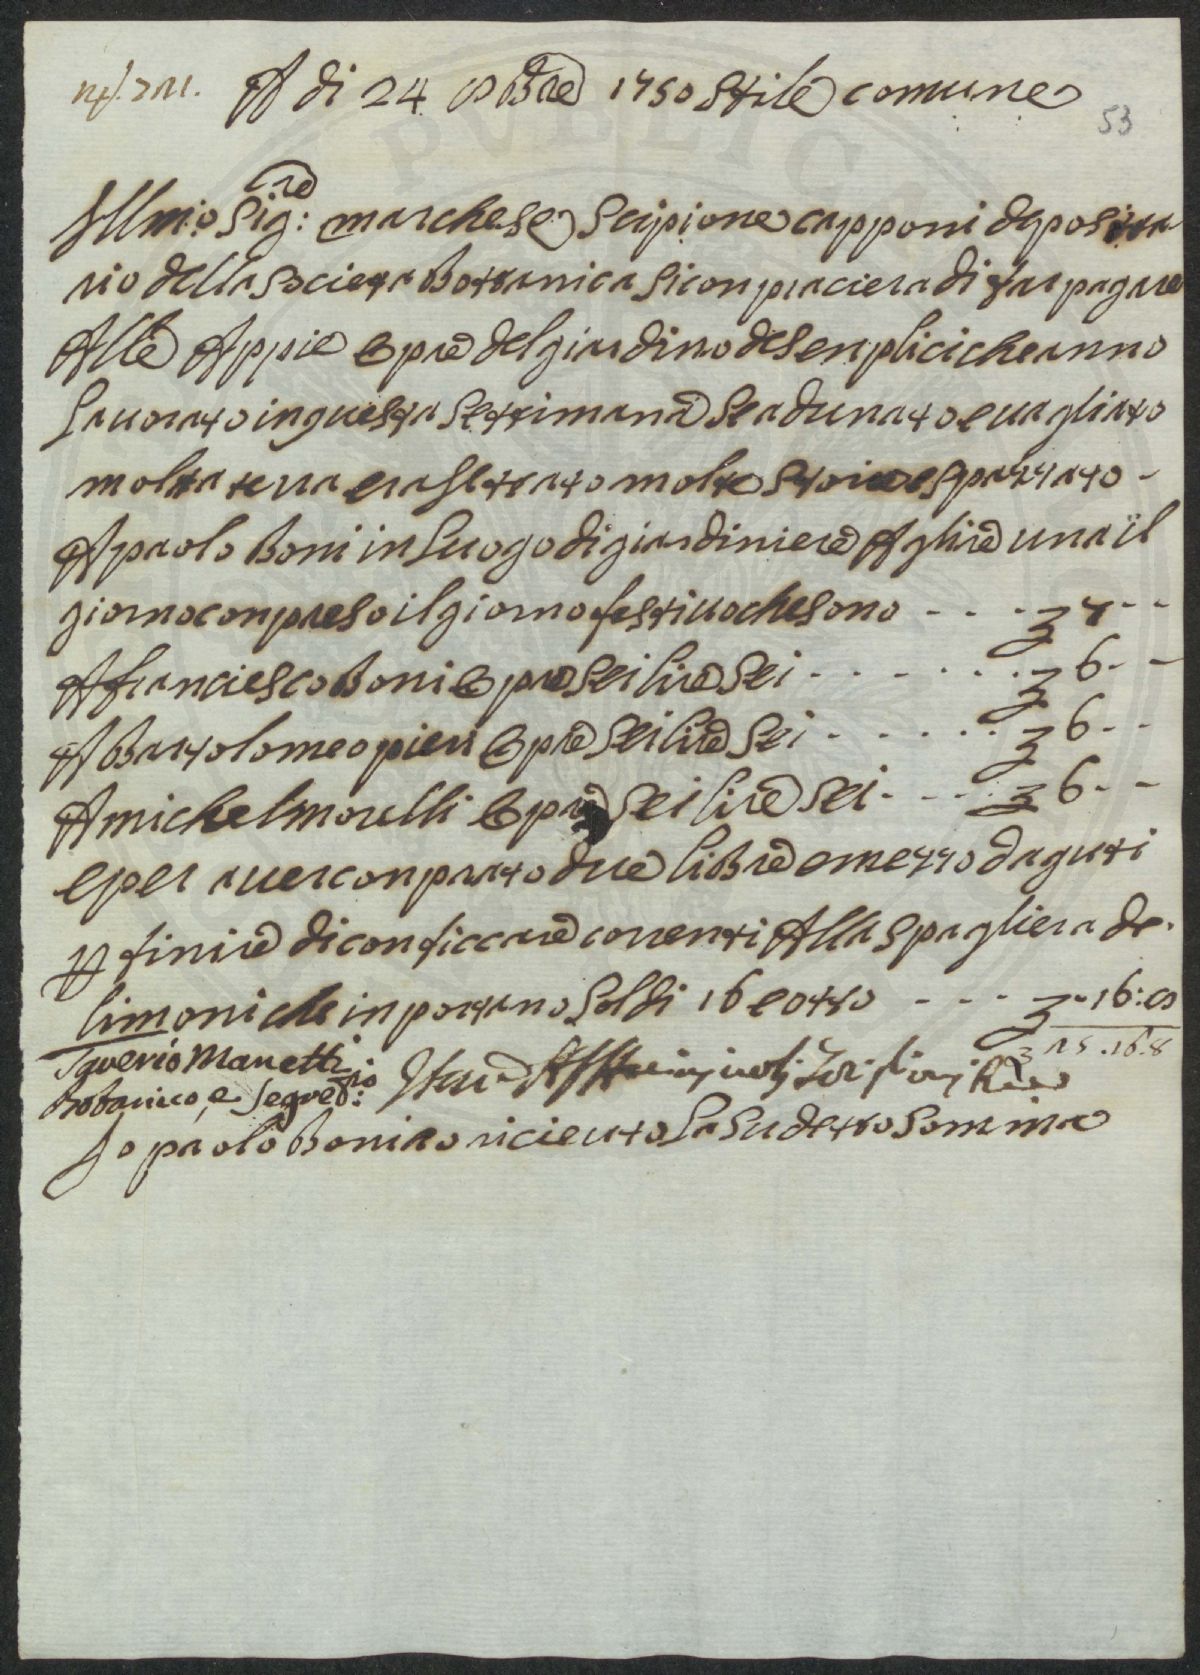 A di 24 8Bre 1750 Stile comune
53
Illmo Sig:re marchese Scipione capponi deposita
rio della Societa Bottanica Si conpiaciera di far pagare
Alle Appie opre del giardino de Senplici che anno
Lavorato in questa Settimana Se adunato e vagliato
molta terra e rasettato molte stoie e spazzato -
A paolo Boni in Luogo di giardiniere A lire una il
giorno conpreso il giorno festivo che sono - - - £ 7 - -
A franciesco Boni opre Sei lire Sei - - - - - - £ 6 - -
A Bartolomeo pieri opre Sei lire Sei - - - - - £ 6 - -
A michel morelli opre Sei lire Sei - - - - £ 6 - -
e per aver conprato due libbre e mezzo d aguti
p finire di conficcare correnti Alla Spagliera de
limoni che inportano Soldi 16 e otto - - - £ - 16: 8
£ 25 . 16. 8
Saverio Manetti
Botanico, e Segret:rio
Io paolo Boni o riceuto La Sudetto Somma